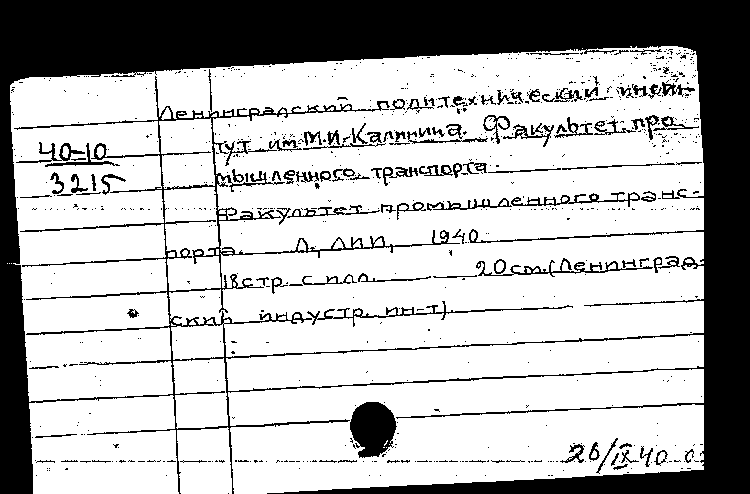 Ленинградский политехнический инсти-
тут им. М.И. Калинина. Факультет про-
40-10
3215
мышленного транспорта.
Факультет промышленного транс-
порта. Л., ЛПИ, 1940.
18 стр. с илл. 20 см. (Ленинград-
ский индустр. ин-т).
26/IX 40